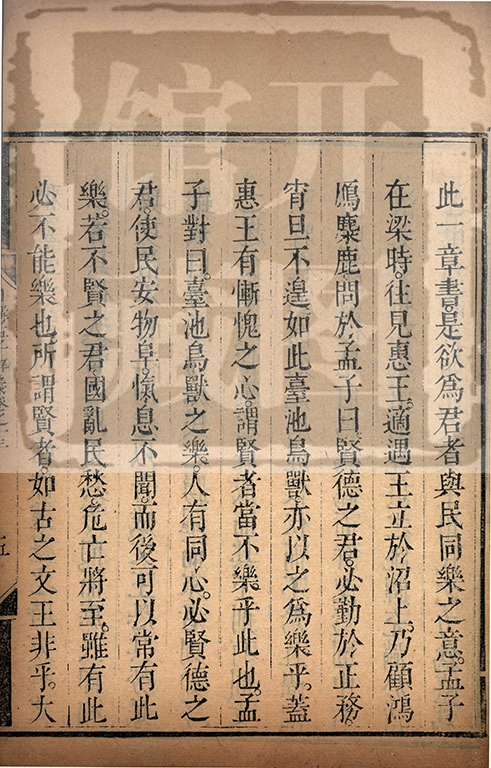 此一章書是欲為君者與民同樂之意。孟子
在梁時。往見惠王。適遇王立於沼上。乃顧鴻
鴈麋鹿問於孟子曰。賢德之君。必勤於正務。
宵旦不遑。如此臺池鳥獸。亦以之為樂乎。蓋
惠王有慚愧之心。謂賢者當不樂乎此也。孟
子對曰。臺池鳥獸之樂。人有同心。必賢德之
君。使民安物阜。愾息不聞。而後可以常有此
樂。若不賢之君。國亂民愁。危亡將至。雖有此
必不能樂也。所謂賢者。如古之文王非乎。大